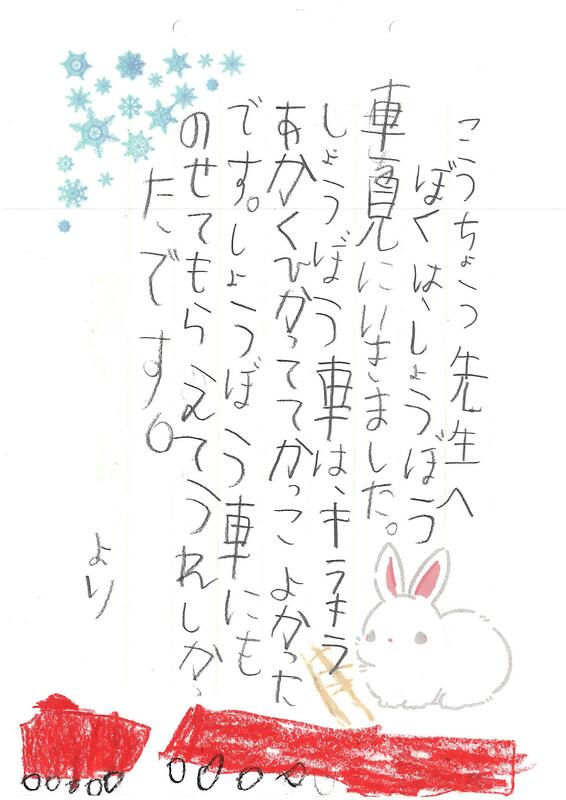 こうちょう先生へ
ぼくは、しょうぼう
車見にいきました。
しょうぼう車は、キラキラ
あかくひかっててかっこよかった
です。しょうぼう車にも
のせてもらえてうれしかっ
たです。
より